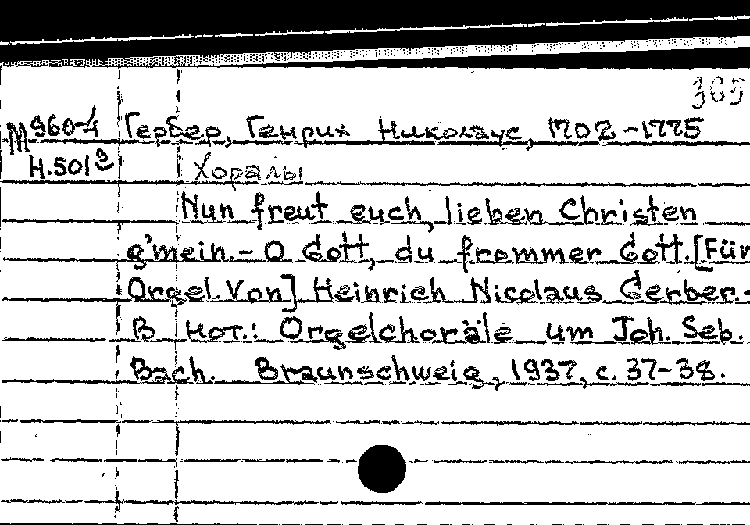 365
М960-4 Гербер, Генрих Николаус, 1702-1775
Н.5013 Хоралы
Nun freut euch, lieben Christen
g'mein.- O Gott, du frommer Gott.[Für
Orgel.Von] Heinrich Nicolaus Gerber.-
В нот.: Orgelchoräle um Joh. Seb.
Bach. Braunschweig, 1937, с. 37-38.